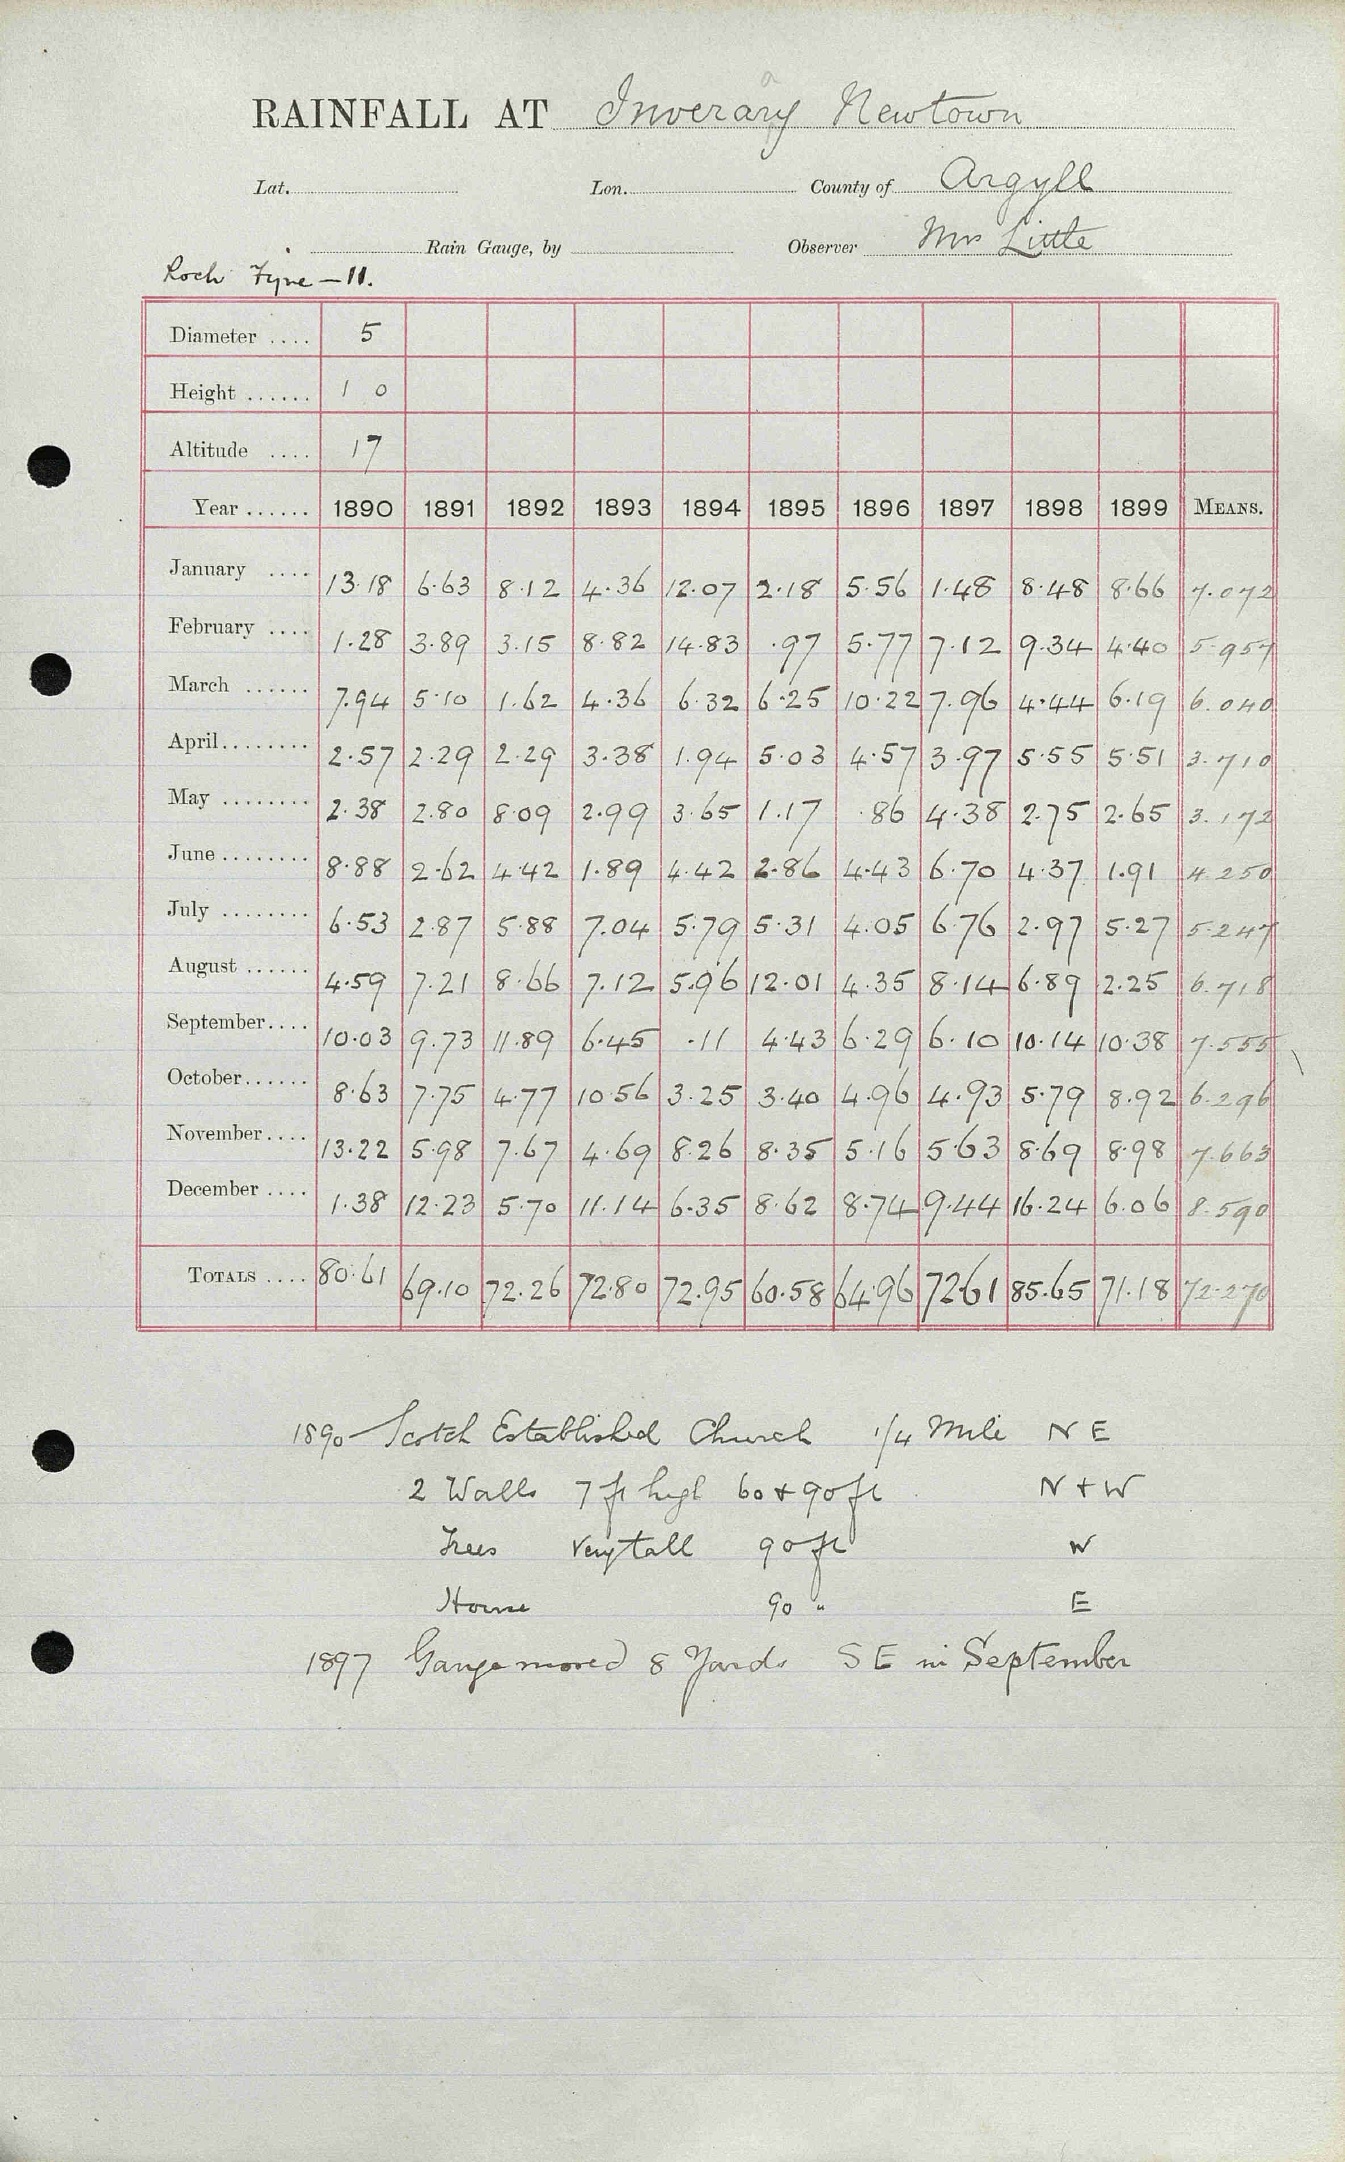 RAINFALL AT Inveraray Newtown
Lat. Lon. County of Argyll
Rain Gauge, by Observer Mrs Little
Loch Fyne — 11.
Diameter .... 5
Height ...... 1 0
Altitude .... 17
Year ...... 1890 1891 1892 1893 1894 1895 1896 1897 1898 1899 MEANS.
January .... 13.18 6.63 8.12 4.36 12.07 2.18 5.56 1.48 8.48 8.66 7.072
February .... 1.28 3.89 3.15 8.82 14.83 .97 5.77 7.12 9.34 4.40 5.957
March ...... 7.94 5.10 1.62 4.36 6.32 6.25 10.22 7.96 4.44 6.19 6.040
April........ 2.57 2.29 2.29 3.38 1.94 5.03 4.57 3.97 5.55 5.51 3.710
May ........ 2.38 2.80 8.09 2.99 3.65 1.17 .86 4.38 2.75 2.65 3.172
June ........ 8.88 2.62 4.42 1.89 4.42 2.86 4.43 6.70 4.37 1.91 4.250
July ........ 6.53 2.87 5.88 7.04 5.79 5.31 4.05 6.76 2.97 5.27 5.247
August ...... 4.59 7.21 8.66 7.12 5.96 12.01 4.35 8.14 6.89 2.25 6.718
September.... 10.03 9.73 11.89 6.45 .11 4.43 6.29 6.10 10.14 10.38 7.555
October...... 8.63 7.75 4.77 10.56 3.25 3.40 4.96 4.93 5.79 8.92 6.296
November.... 13.22 5.98 7.67 4.69 8.26 8.35 5.16 5.63 8.69 8.98 7.663
December .... 1.38 12.23 5.70 11.14 6.35 8.62 8.74 9.44 16.24 6.06 8.590
TOTALS .... 80.61 69.10 72.26 72.80 72.95 60.58 64.96 72.61 85.65 71.18 72.270
1890 Scotch Established Church 1/4 Mile N E
2 Walls 7 ft high 60 + 90 ft N + W
Trees Very tall 90 ft W
House 90 " E
1897 Gauge moved 8 Yards S E in September